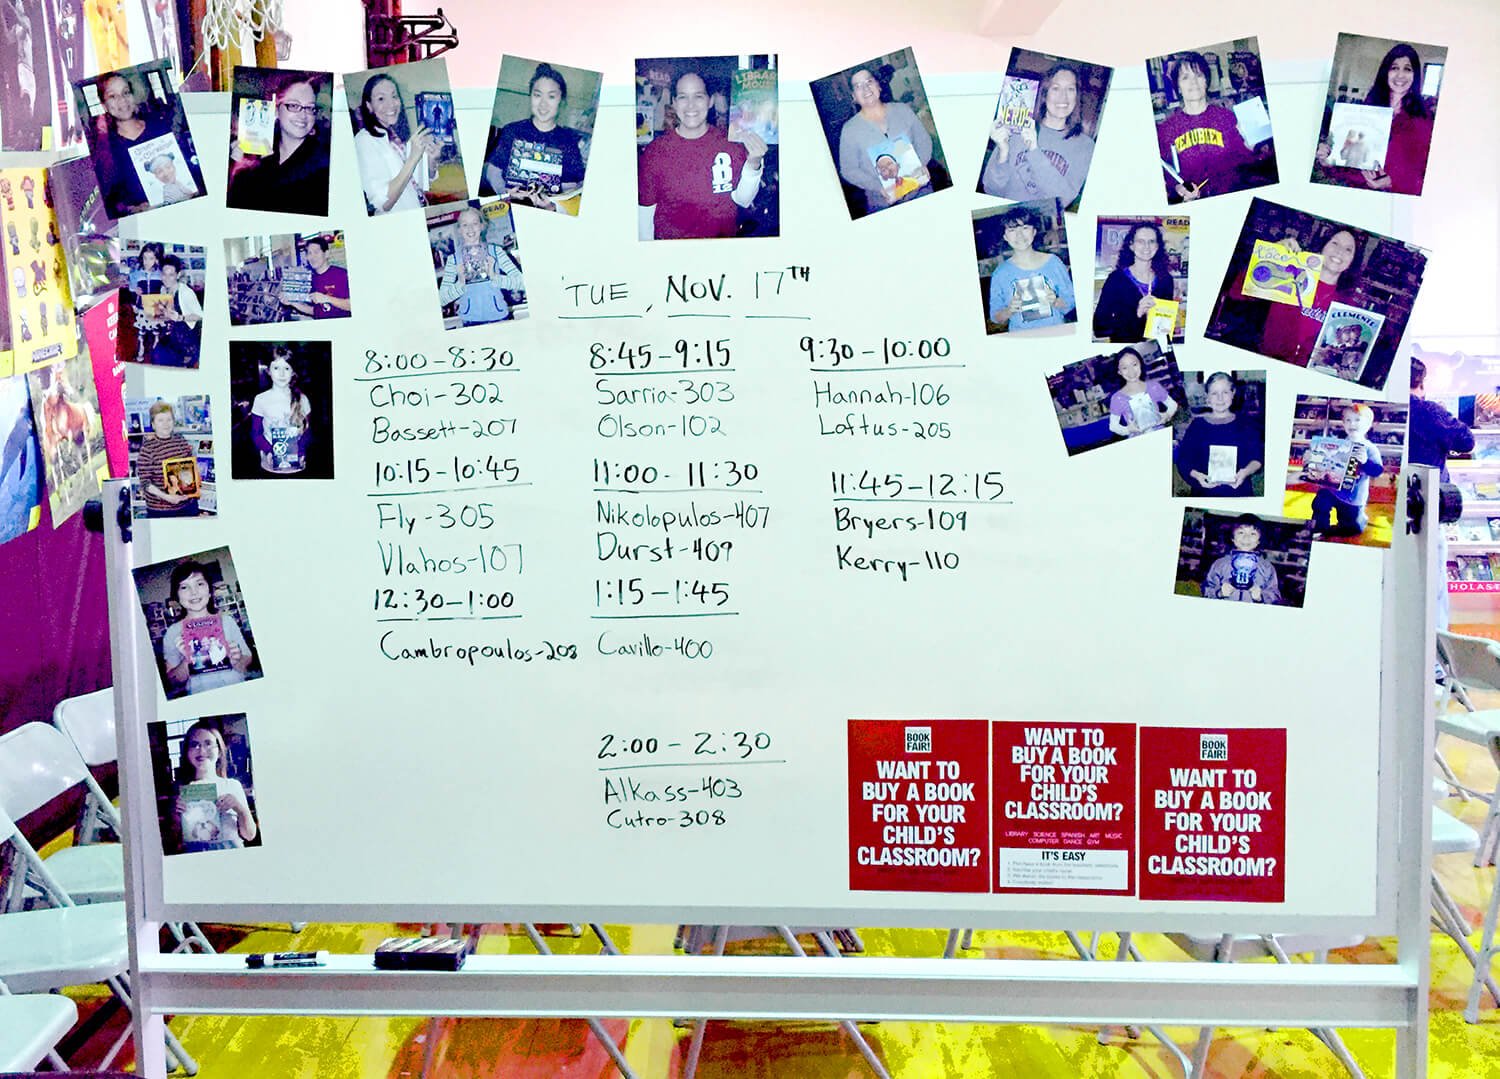 TUE, NOV. 17TH
8:00-8:30
Choi-302
Bassett-207
8:45-9:15
Sarria-303
Olson-102
9:30-10:00
Hannah-106
Loftus-205
10:15-10:45
Fly-305
Vlahos-107
11:00-11:30
Nikolopulos-407
Durst-409
11:45-12:15
Bryers-109
Kerry-110
12:30-1:00
Cambropoulos-208
1:15-1:45
Cavillo-400
2:00-2:30
Alkass-403
Cutro-308
BOOK
FAIR!
WANT TO
BUY A BOOK
FOR YOUR
CHILD'S
CLASSROOM?
WANT TO
BUY A BOOK
FOR YOUR
CHILD'S
CLASSROOM?
LIBRARY SCIENCE SPANISH ART MUSIC
COMPUTER DANCE GYM
IT'S EASY
BOOK
FAIR!
WANT TO
BUY A BOOK
FOR YOUR
CHILD'S
CLASSROOM?
READ
LIBRARY
MOUSE
NERDS
READ
READ
CLEMENTE